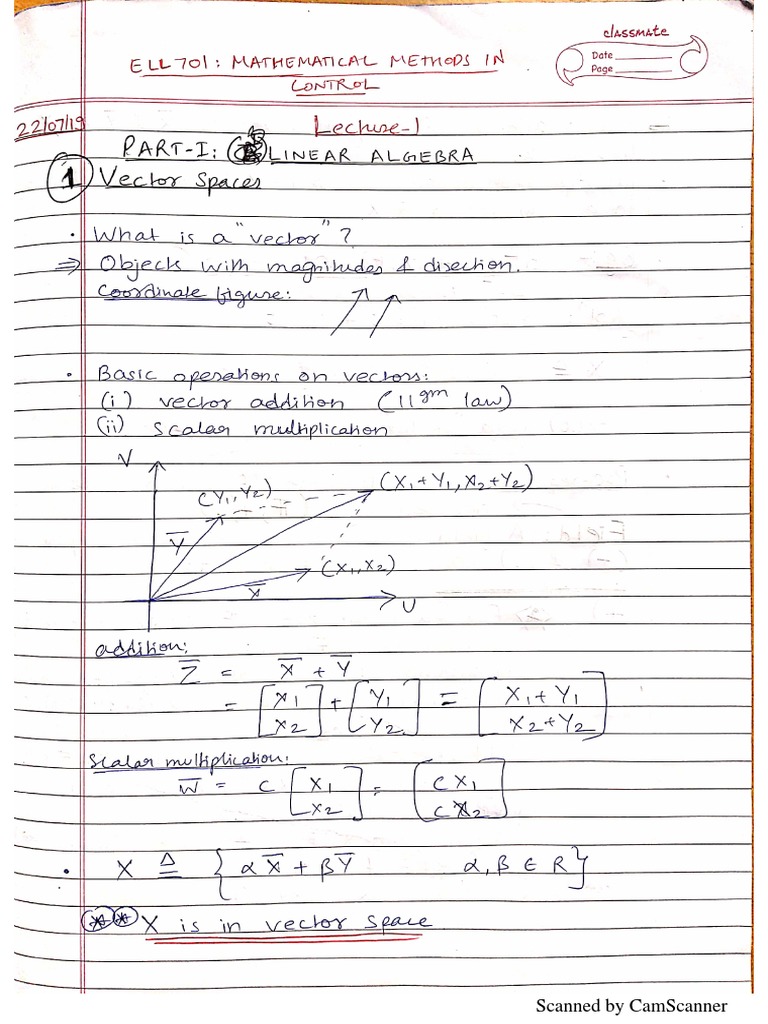 classmate
Date
Page
ELL701: MATHEMATICAL METHODS IN
CONTROL
22/07/19
Lecture-1
PART-I: LINEAR ALGEBRA
1 Vector Spaces
• What is a "vector"?
⇒ Objects with magnitudes & direction.
Coordinate figure:
• Basic operations on vectors:
(i) vector addition (11gm law)
(ii) scalar multiplication
V
(Y1, Y2)
(X1+Y1, X2+Y2)
Y̅
(X1, X2)
X̅
U
addition:
Z̅ = X̅ + Y̅
= [X1 X2] + [Y1 Y2] = [X1+Y1 X2+Y2]
Scalar multiplication:
W̅ = C [X1 X2] = [CX1 CX2]
• X ≜ { αX̅ + βY̅ α, β ∈ R}
** X is in vector space
Scanned by CamScanner